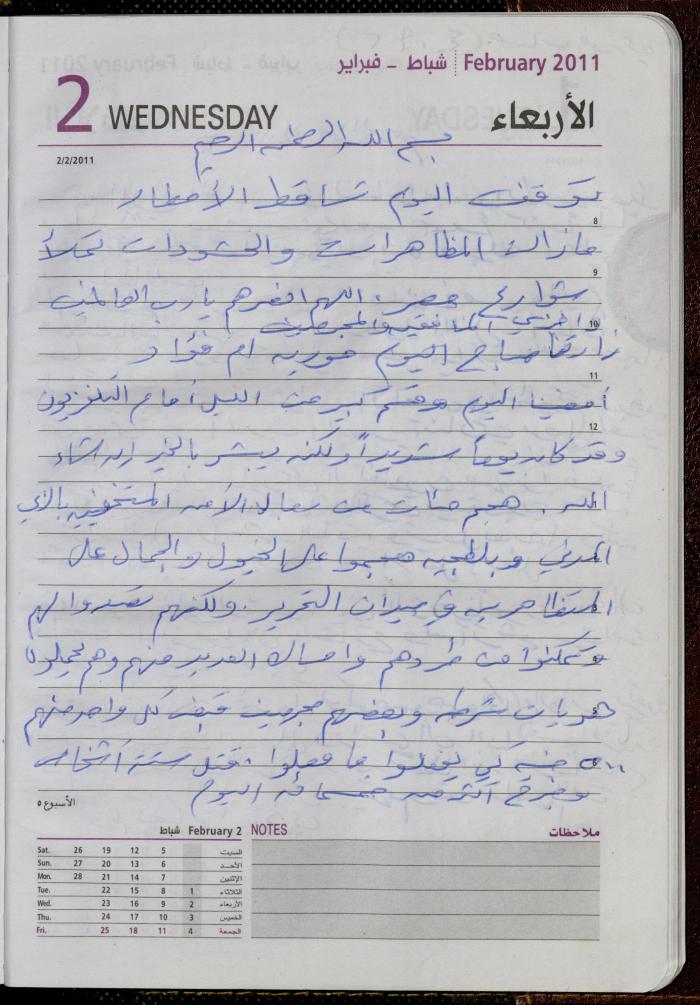 February 2011 شباط - فبراير
2 WEDNESDAY الأربعاء
2/2/2011
بسم الله الرحمن الرحيم
توقف اليوم تساقط الأمطار
8
مازالت المظاهرات والحشودات تملأ
9
شوارع مصر. اللهم انصرهم يارب العالمين
واخزي المنافقين والمجرمين
10
زارتنا صباح اليوم حوريه ام فؤاد
11
أمضينا اليوم وقسم كبير من الليل أمام التلفزيون
12
وقد كان يوماً شديداً ولكنه يبشر بالخير إن شاء
الله. هجم مئات من رجال الأمن المتخفين بالزي
المدني وبلطجيه هجموا على الخيول والجمال على
المتظاهرين في ميدان التحرير. ولكنهم تصدوا لهم
وتمكنوا من طردهم وامساك العديد منهم وهم يحملون
هويات شرطه وبعضهم مجرمين قبض كل واحد منهم
جنيه كي يفعلوا ما فعلوا. قتل ستة أشخاص
وجرح أكثر من خمسمائه اليوم
الأسبوع ٥
February 2 شباط
Sat. 26 19 12 5 السبت
Sun. 27 20 13 6 الأحد
Mon. 28 21 14 7 الإثنين
Tue. 22 15 8 1 الثلاثاء
Wed. 23 16 9 2 الأربعاء
Thu. 24 17 10 3 الخميس
Fri. 25 18 11 4 الجمعة
NOTES ملاحظات